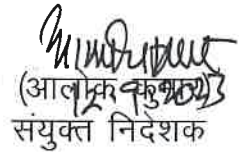 (आलोक कुमार)
संयुक्त निदेशक